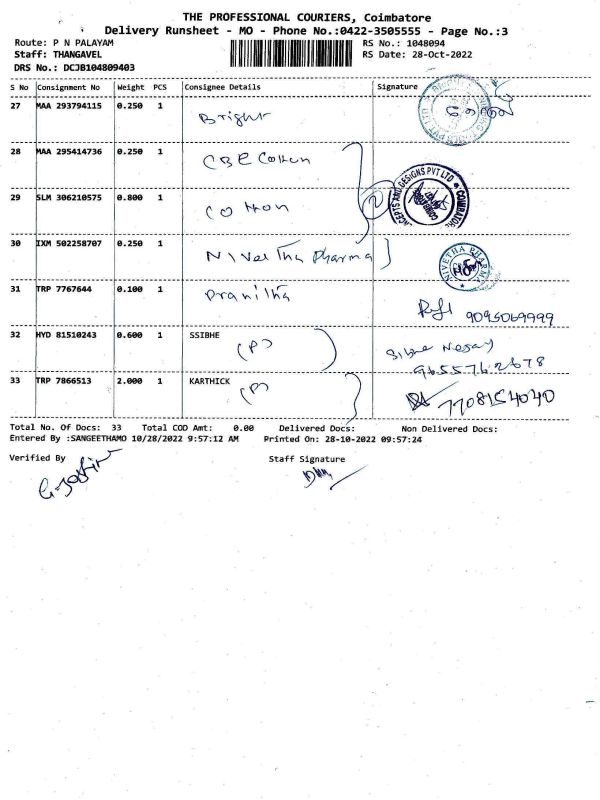 THE PROFESSIONAL COURIERS, Coimbatore
Delivery Runsheet - MO - Phone No.:0422-3505555 - Page No.:3
Route: P N PALAYAM RS No.: 1048094
Staff: THANGAVEL RS Date: 28-Oct-2022
DRS No.: DCJB104809403
S No Consignment No Weight PCS Consignee Details Signature
27 MAA 293794115 0.250 1 Bright
28 MAA 295414736 0.250 1 CBE Cotton
29 SLM 306210575 0.800 1 Cotton
30 IXM 502258707 0.250 1 Nivetha Pharma NIVETHA PHARMA
31 TRP 7767644 0.100 1 Pranitha 9095069999
32 HYD 81510243 0.600 1 SSIBHE (P) 9655762678
33 TRP 7866513 2.000 1 KARTHICK (P) 7708154040
Total No. Of Docs: 33 Total COD Amt: 0.00 Delivered Docs: Non Delivered Docs:
Entered By :SANGEETHAMO 10/28/2022 9:57:12 AM Printed On: 28-10-2022 09:57:24
Verified By Staff Signature